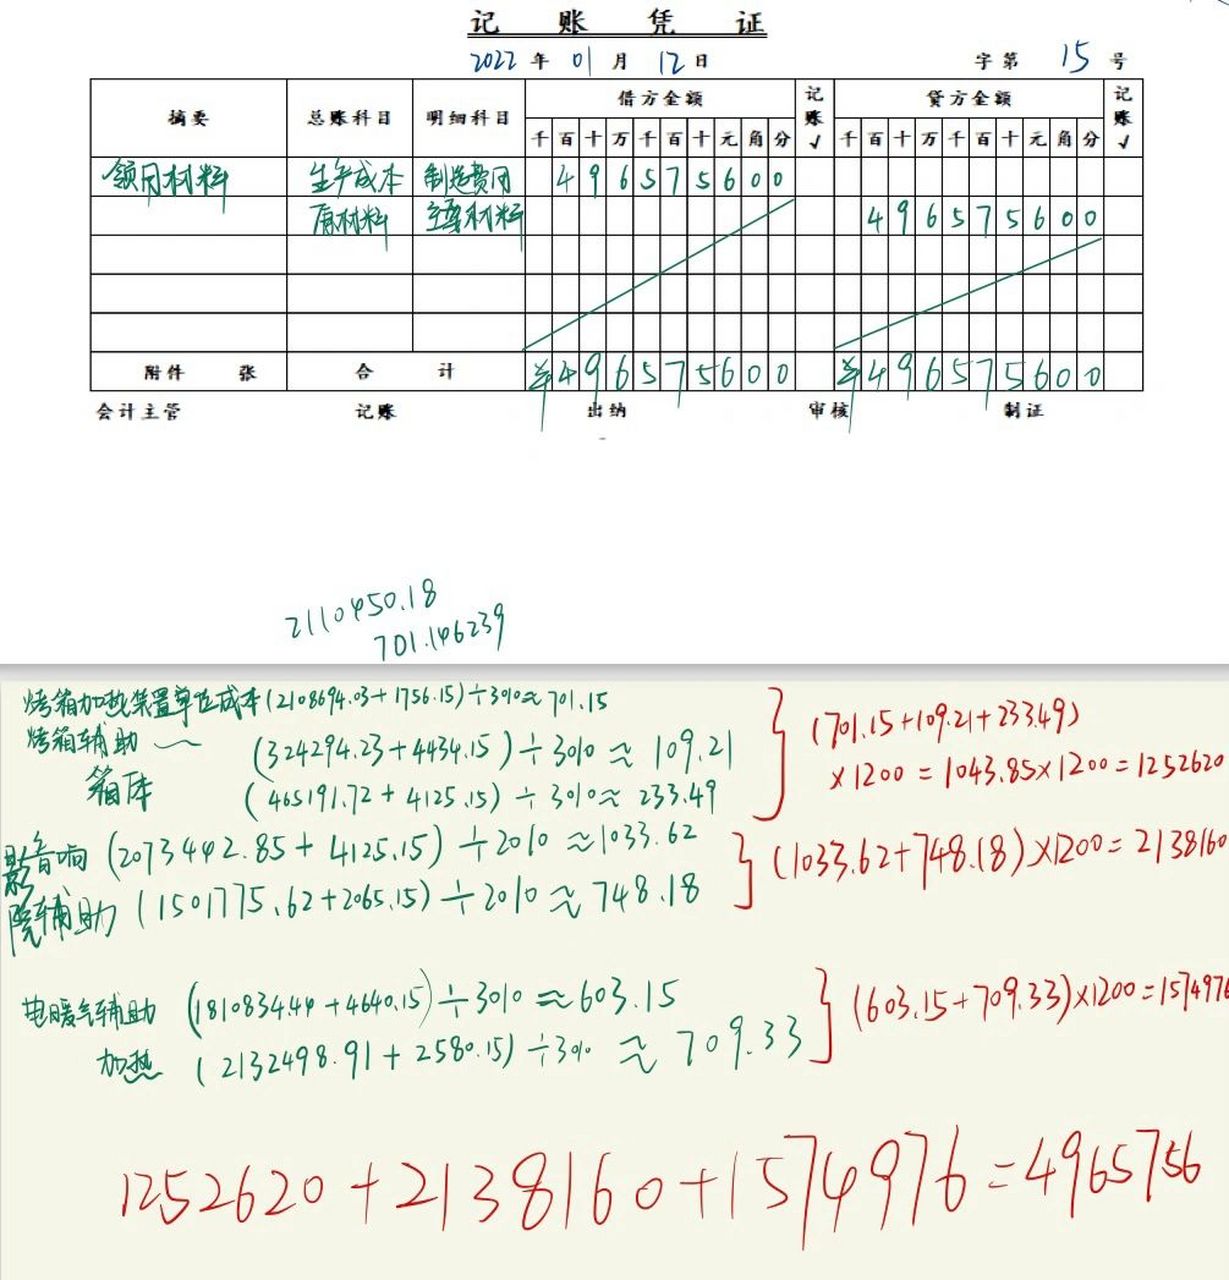 记 账 凭 证
2022 年 01 月 12 日 字第 15 号
摘要 总账科目 明细科目 借方金额 记账√ 贷方金额 记账√
千 百 十 万 千 百 十 元 角 分 千 百 十 万 千 百 十 元 角 分
领用材料 生产成本 制造费用 496575600
原材料 主要材料 496575600
附件 张 合 计 ¥496575600 ¥496575600
会计主管 记账 出纳 审核 制证
2110450.18
701.146239
烤箱加热装置单位成本(2108694.03+1756.15)÷3010≈701.15
烤箱辅助 (324294.23+4434.15)÷3010≈109.21
箱体 (465191.72+4125.15)÷3010≈233.49
(701.15+109.21+233.49)
×1200=1043.85×1200=1252620
影音响(2073442.85+4125.15)÷2010≈1033.62
院辅助(1501775.62+2065.15)÷2010≈748.18
(1033.62+748.18)×1200=2138160
电暖气辅助 (1810834.44+4640.15)÷3010≈603.15
加热 (2132498.91+2580.15)÷3010≈709.33
(603.15+709.33)×1200=1574976
1252620+2138160+1574976=4965756